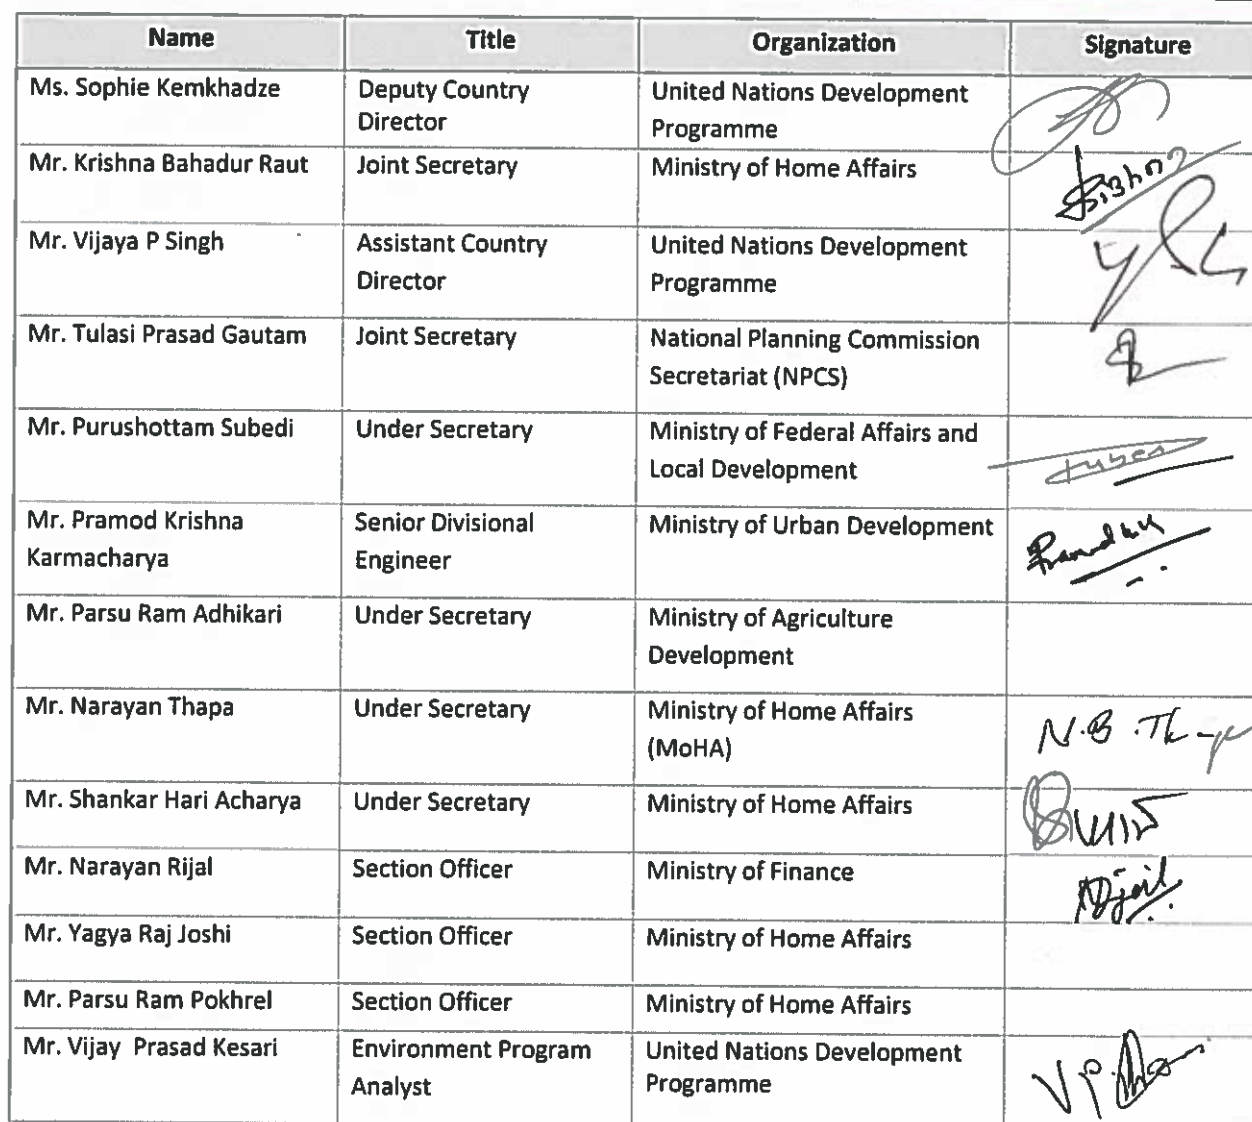 Name Title Organization Signature
Ms. Sophie Kemkhadze Deputy Country United Nations Development
Director Programme
Mr. Krishna Bahadur Raut Joint Secretary Ministry of Home Affairs
Mr. Vijaya P Singh Assistant Country United Nations Development
Director Programme
Mr. Tulasi Prasad Gautam Joint Secretary National Planning Commission
Secretariat (NPCS)
Mr. Purushottam Subedi Under Secretary Ministry of Federal Affairs and
Local Development
Mr. Pramod Krishna Senior Divisional Ministry of Urban Development
Karmacharya Engineer
Mr. Parsu Ram Adhikari Under Secretary Ministry of Agriculture
Development
Mr. Narayan Thapa Under Secretary Ministry of Home Affairs
(MoHA) N.B.
Mr. Shankar Hari Acharya Under Secretary Ministry of Home Affairs
Mr. Narayan Rijal Section Officer Ministry of Finance
Mr. Yagya Raj Joshi Section Officer Ministry of Home Affairs
Mr. Parsu Ram Pokhrel Section Officer Ministry of Home Affairs
Mr. Vijay Prasad Kesari Environment Program United Nations Development
Analyst Programme